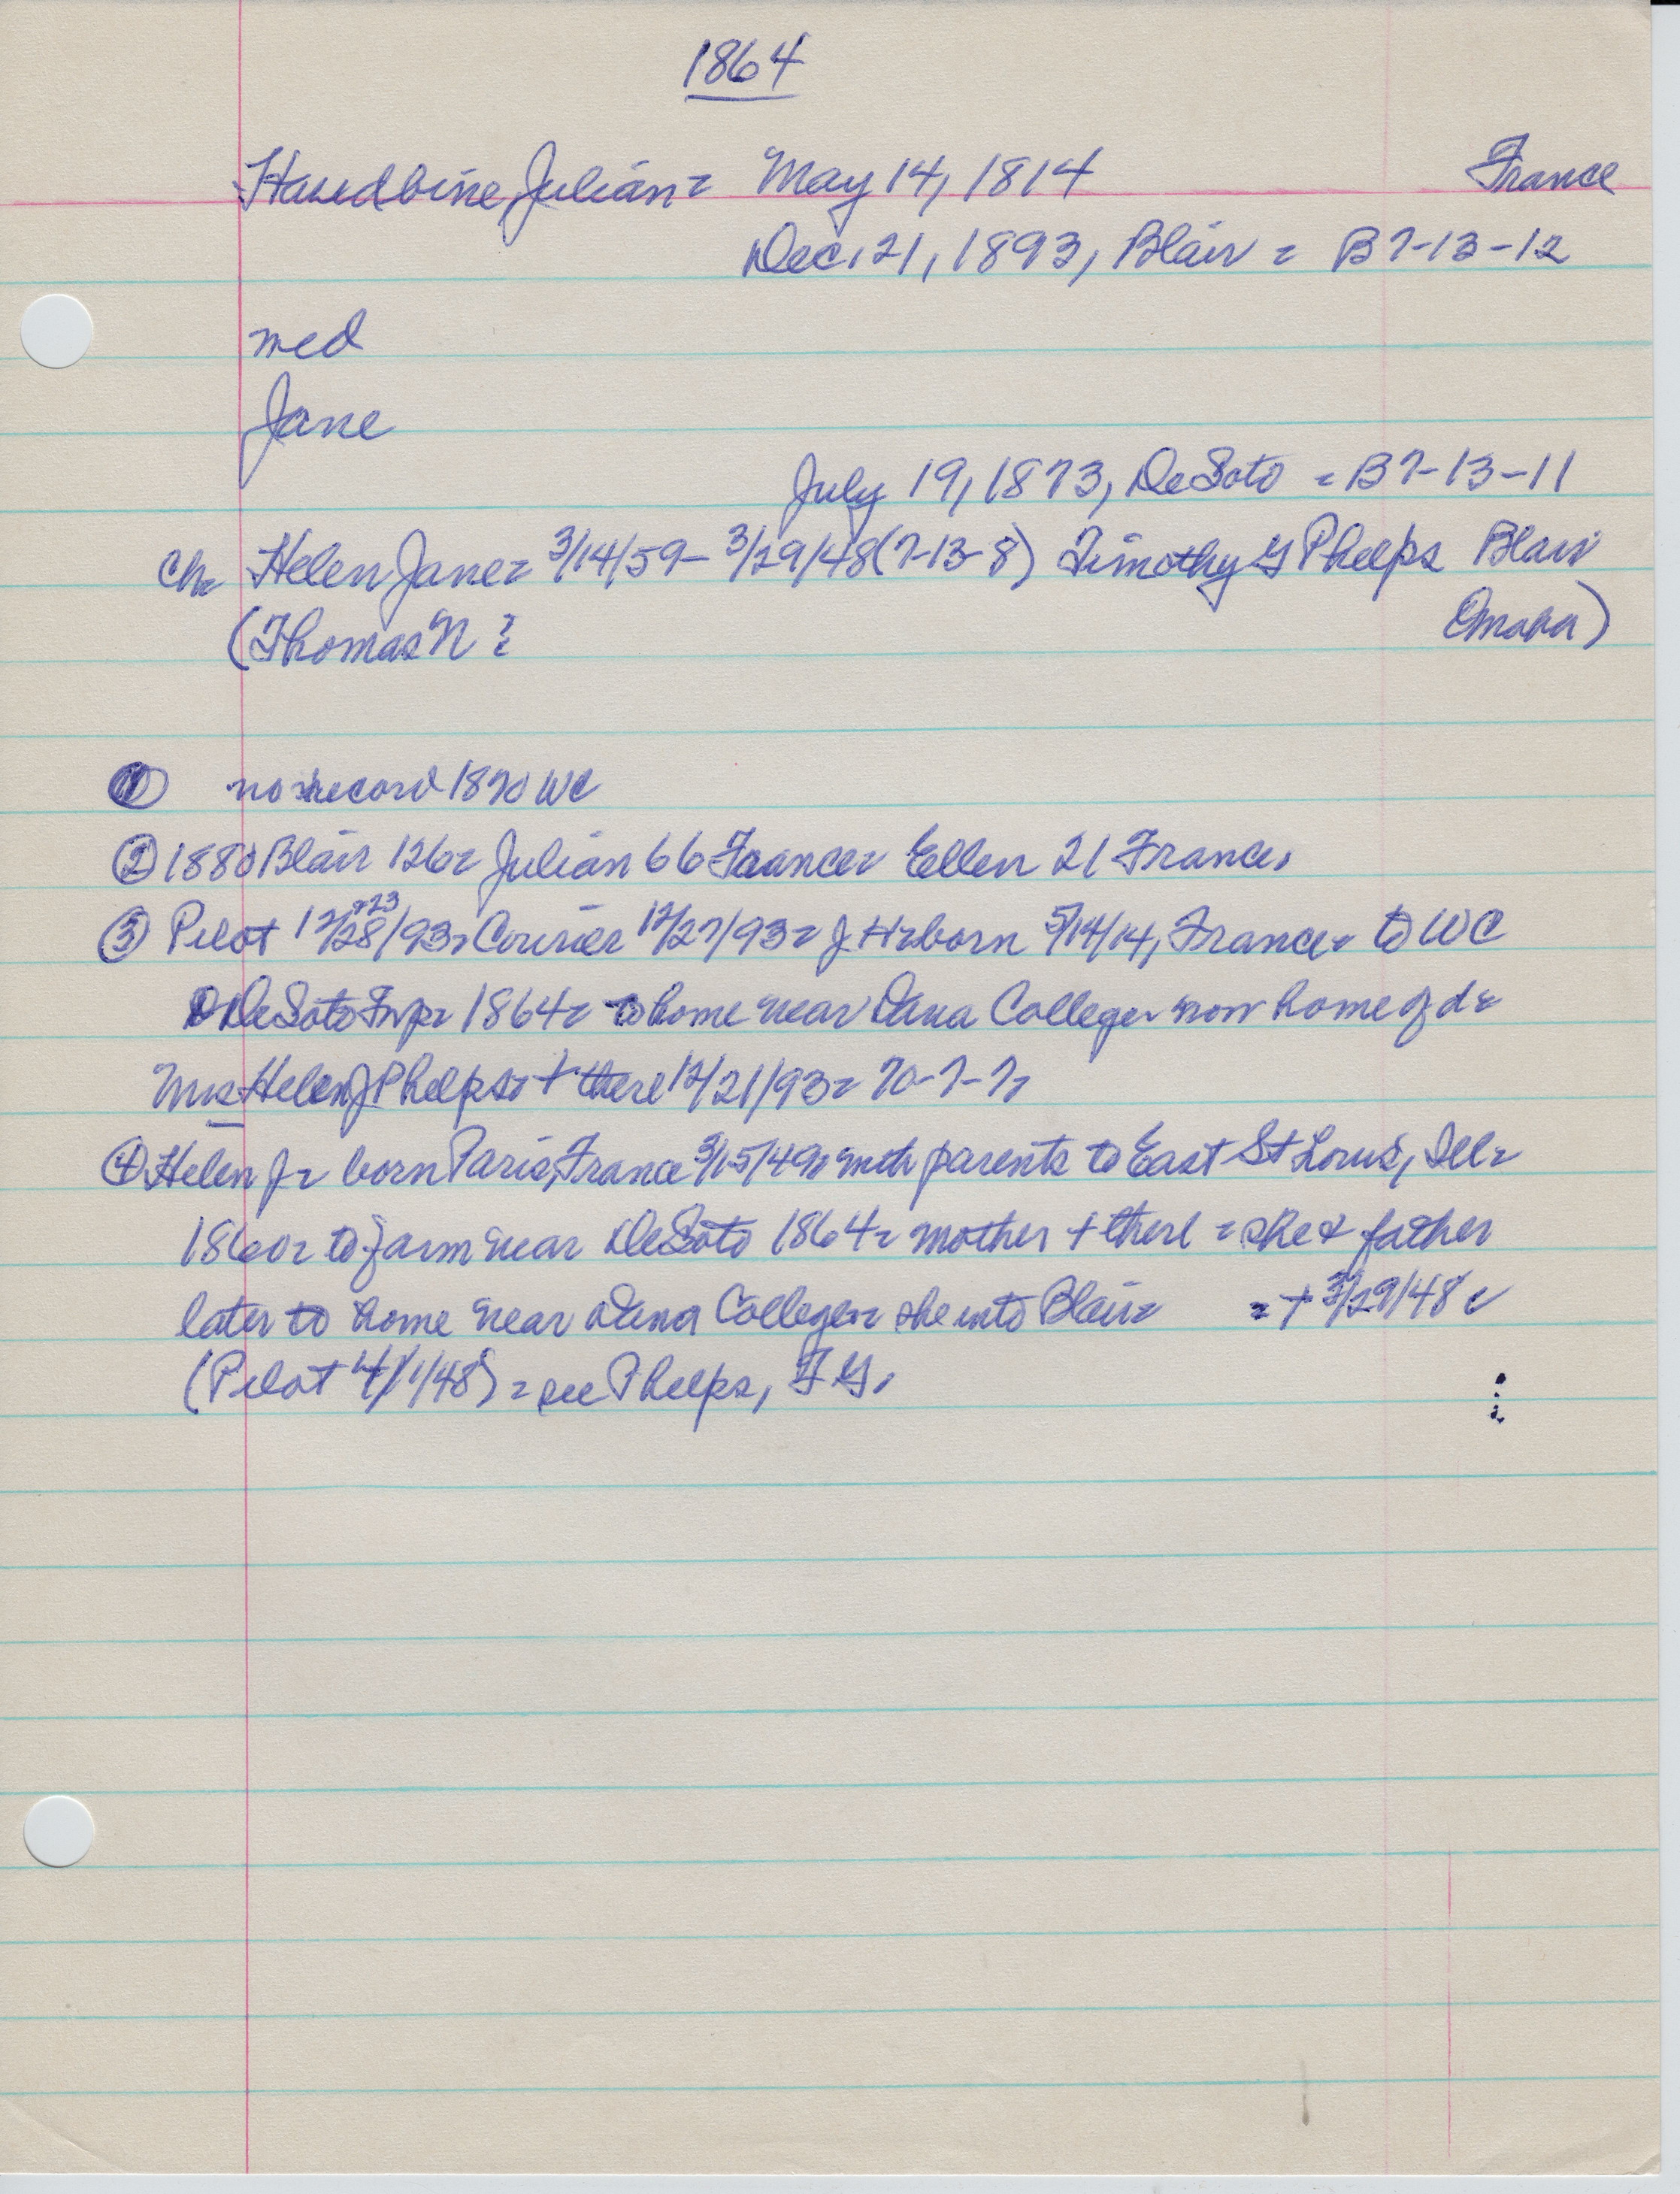 1864
Hasedbine, Julian = May 14, 1814 France
Dec. 21, 1893, Blair = B 7-13-12
med
Jane
July 19, 1873, DeSoto = B 7-13-11
ch = Helen Jane = 3/14/59 - 3/29/48 (7-13-8) Timothy G Phelps Blair
(Thomas N = Omaha)
① no record 1870 WC
② 1880 Blair 126 = Julian 66 France = Ellen 21 France,
③ Pilot 12/28/93, +23 Courier 12/27/93 = J H = born 5/14/14, France = to WC
DeSoto Twp = 1864 = to home near Dana College = now home of d =
Mrs Helen J Phelps = + there 12/21/93 = 70-7-7,
④ Helen J = born Paris, France 3/15/49 = with parents to East St Louis, Ill =
1860 = to farm near DeSoto 1864 = mother + there = she & father
later to home near Dana College = she into Blair = = + 3/29/48 =
(Pilot 4/1/48) = see Phelps, T G,